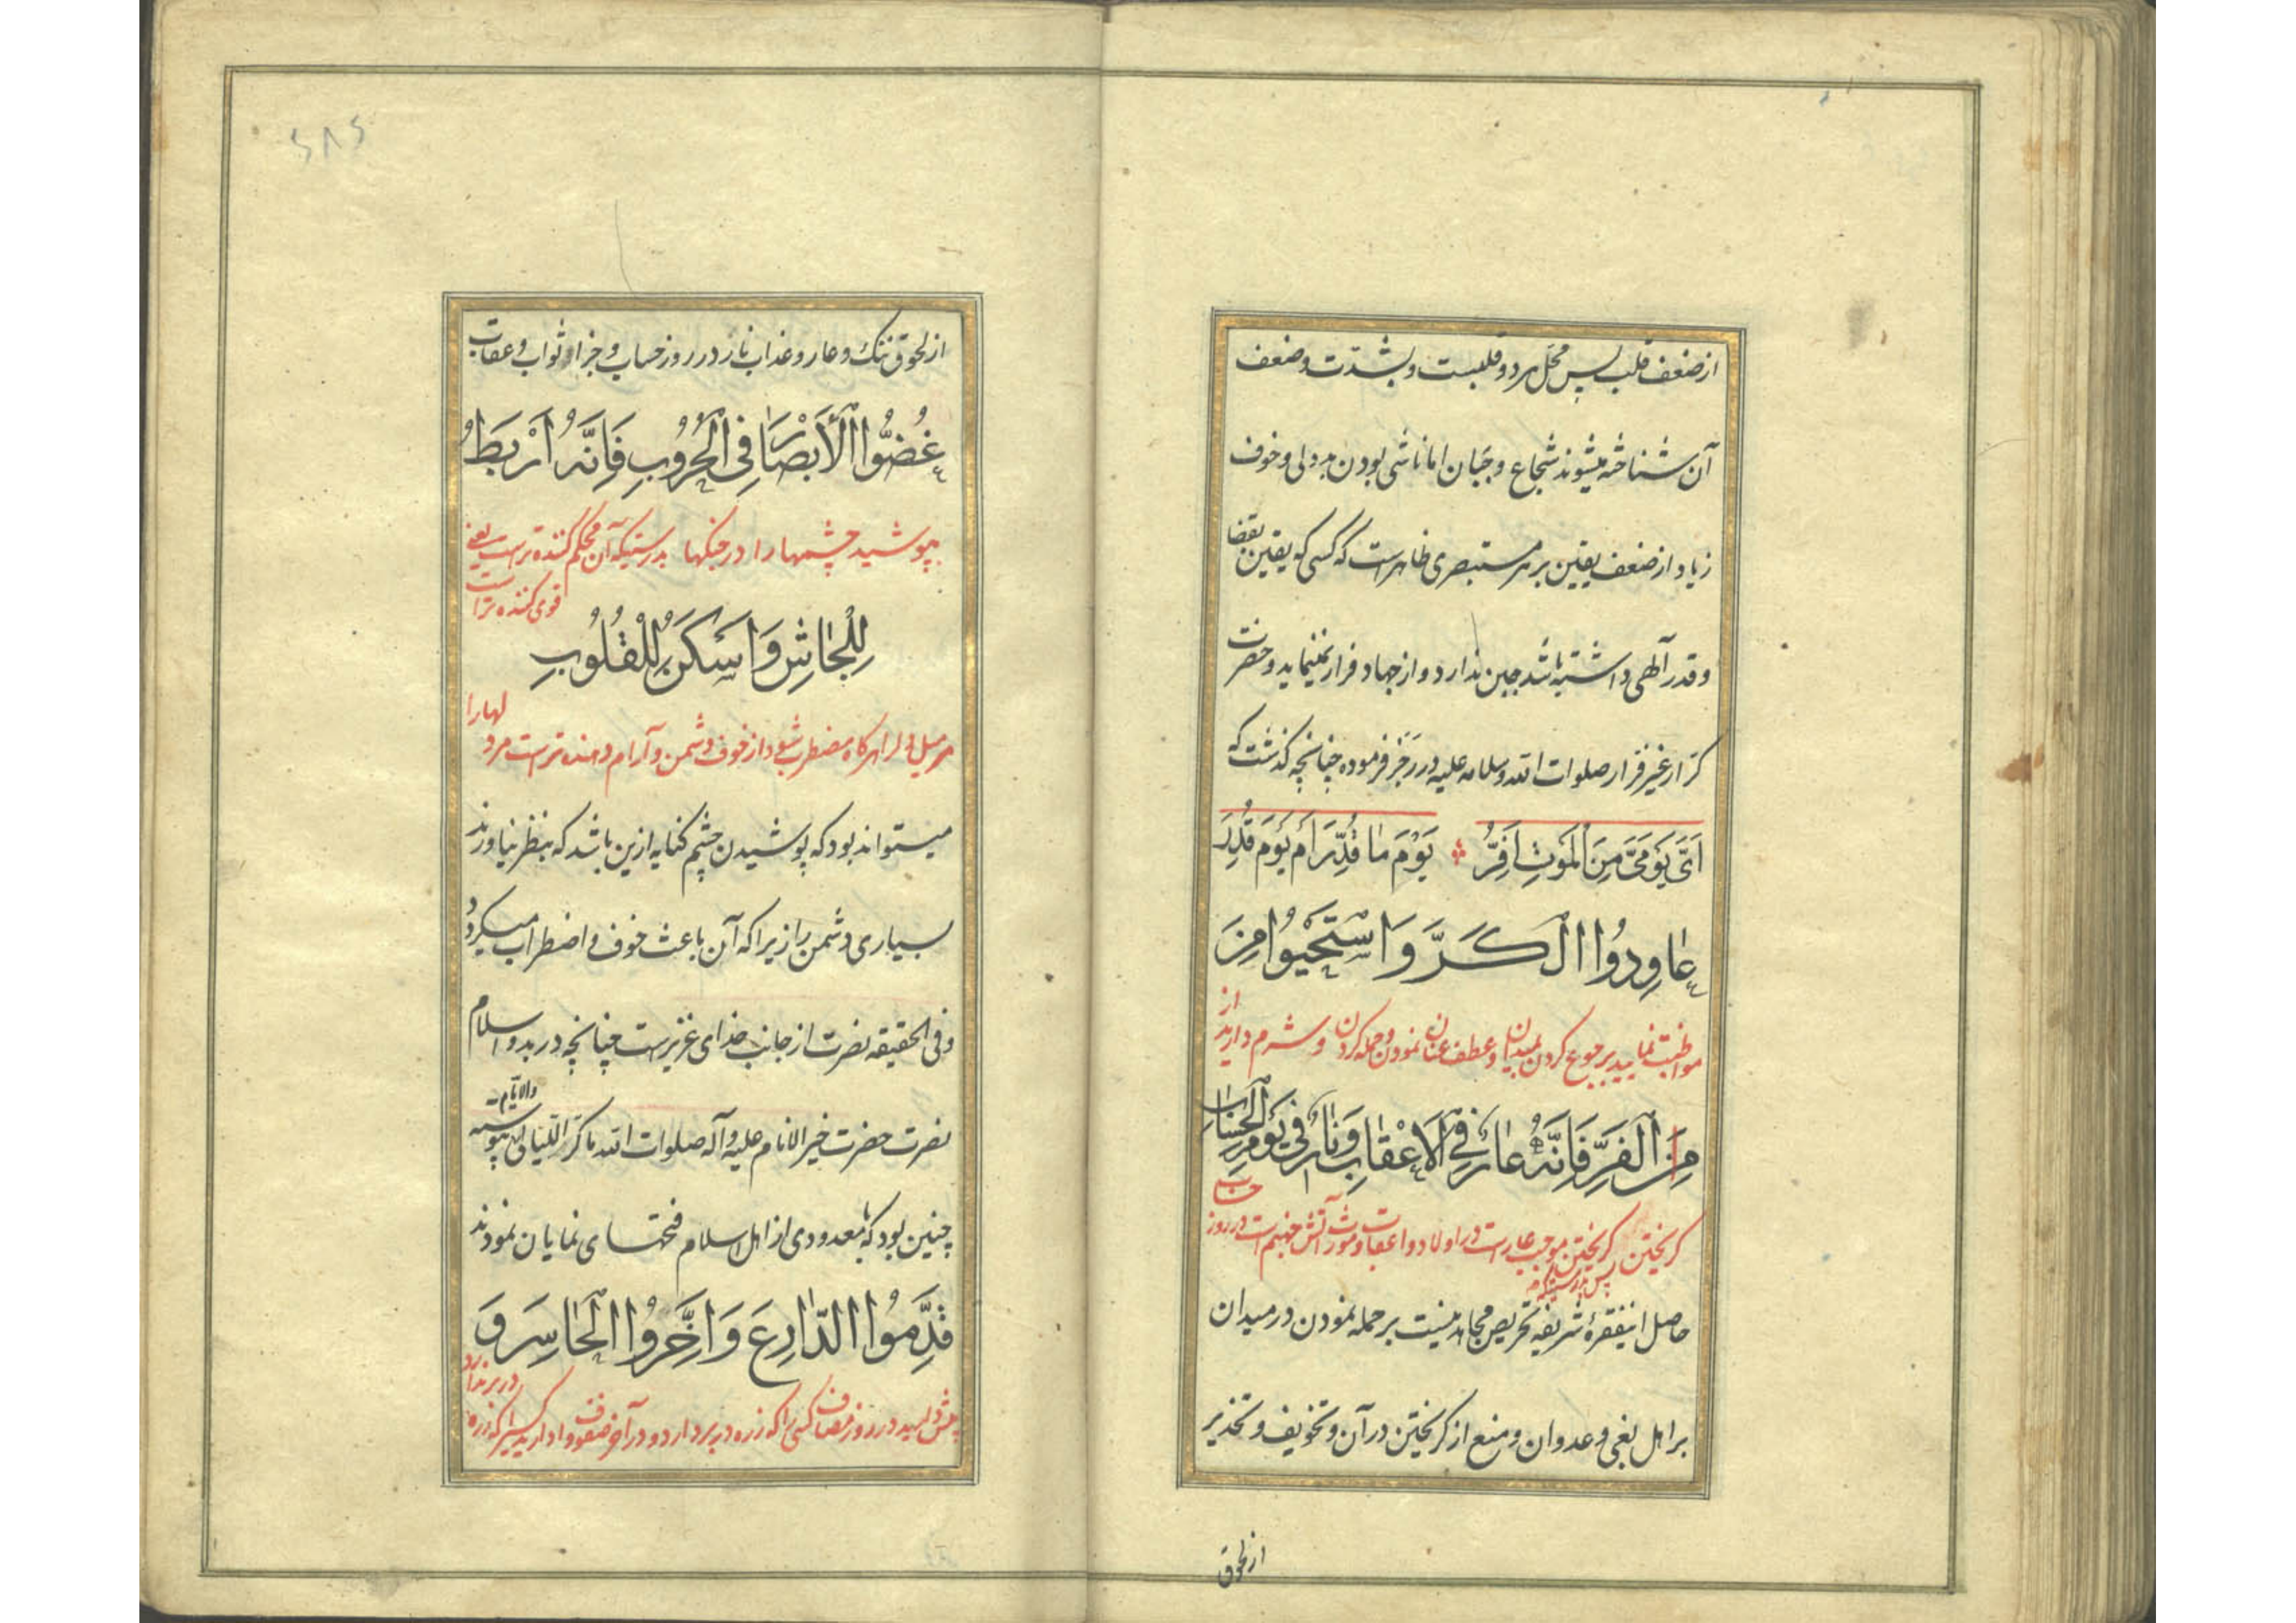 از ضعف قلب پس محل هر دو قلبست و بشدّت و ضعف
آن شناخته میشوند شجاع و جَبان اما ناشی بودن بددلی و خوف
زیاد از ضعف یقین بر هر مستبصری ظاهرست که کسی که یقین بقضا
و قدر آلهی داشته باشد جبن ندارد و از جهاد فرار نمینماید و حضرت
کرّار غیر فرّار صلوات الله و سلامه علیه در رَجَز فرموده چنانچه گذشت که
اَیَّ یَوْمَیَّ مِنَ الْمَوْتِ اَفِرُّ یَوْمَ مٰا قُدِّرَ اَمْ یَوْمَ قُدِرَ
عٰاوِدُوا الْكَرَّ وَاسْتَحْيُوا مِنَ
مواظبت نمایید برجوع کردن بمیدان و عطف عنان نمودن و حمله کردن و شرم دارید از
مِنَ الْفَرِّ فَاِنَّهُ عٰارٌ فِي الْاَعْقٰابِ وَنٰارٌ فِي يَوْمِ الْحِسٰابِ
کریختن پس بدرستیکه کریختن موجب عارست در اولاد و اعقاب و مورث آتش جهنم است در روز حساب
حاصل اینفقرهٔ شریفه تحریص مجاهدینست بر حمله نمودن در میدان
بر اهل بغی و عدوان و منع از کریختن در آن و تخویف و تحذیر
از لحوق
۲۸۲
از لحوق ننک و عار و عذاب نار در روز حساب و جزا و ثواب و عقاب
غُضُّوا الْاَبْصٰارَ فِي الْحُرُوبِ فَاِنَّهُ اَرْبَطُ
بپوشید چشمها را در جنکها بدرستیکه آن محکم کننده ترست یعنی
قوی کننده تر است
لِلْجَاْشِ وَاَسْكَنُ لِلْقُلُوبِ
مر میل دل را هرکاه مضطرب شود از خوف دشمن و آرام دهنده ترست مر دلها را
میتواند بود که پوشیدن چشم کنایه ازین باشد که بنظر نیاورند
بسیاری دشمن را زیرا که آن باعث خوف و اضطراب میکردد
و فی الحقیقه نصرت از جانب خدای عزیزست چنانچه در بدو اسلام
نصرت حضرت خیر الانام علیه و آله صلوات الله ما کرّ اللّیالی والایّام پیوسته
چنین بود که معدودی از اهل اسلام فتحهای نمایان نمودند
قَدِّمُوا الدّٰارِعَ وَاَخِّرُوا الْحٰاسِرَ وَ
پیش دارید در روز مصاف کسی را که زره در بر دارد و در آخر صفوف وا دارید کسیرا که زره در بر ندارد